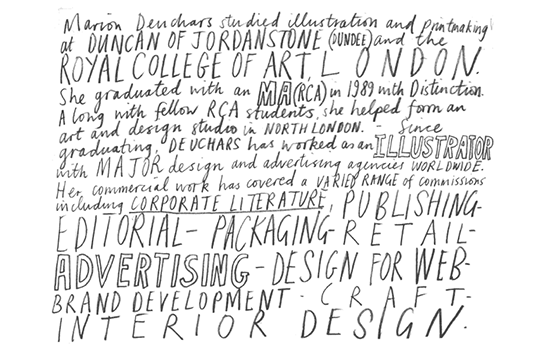 Marion Deuchars studied illustration and printmaking
at DUNCAN OF JORDANSTONE (DUNDEE) and the
ROYAL COLLEGE OF ART, LONDON.
She graduated with an MA (RCA) in 1989 with Distinction.
Along with fellow RCA students, she helped form an
art and design studio in NORTH LONDON. - Since
graduating, DEUCHARS has worked as an ILLUSTRATOR
with MAJOR design and advertising agencies WORLDWIDE.
Her commercial work has covered a VARIED RANGE of commissions
including CORPORATE LITERATURE, PUBLISHING-
EDITORIAL- PACKAGING- RETAIL-
ADVERTISING - DESIGN FOR WEB-
BRAND DEVELOPMENT - CRAFT-
INTERIOR DESIGN.